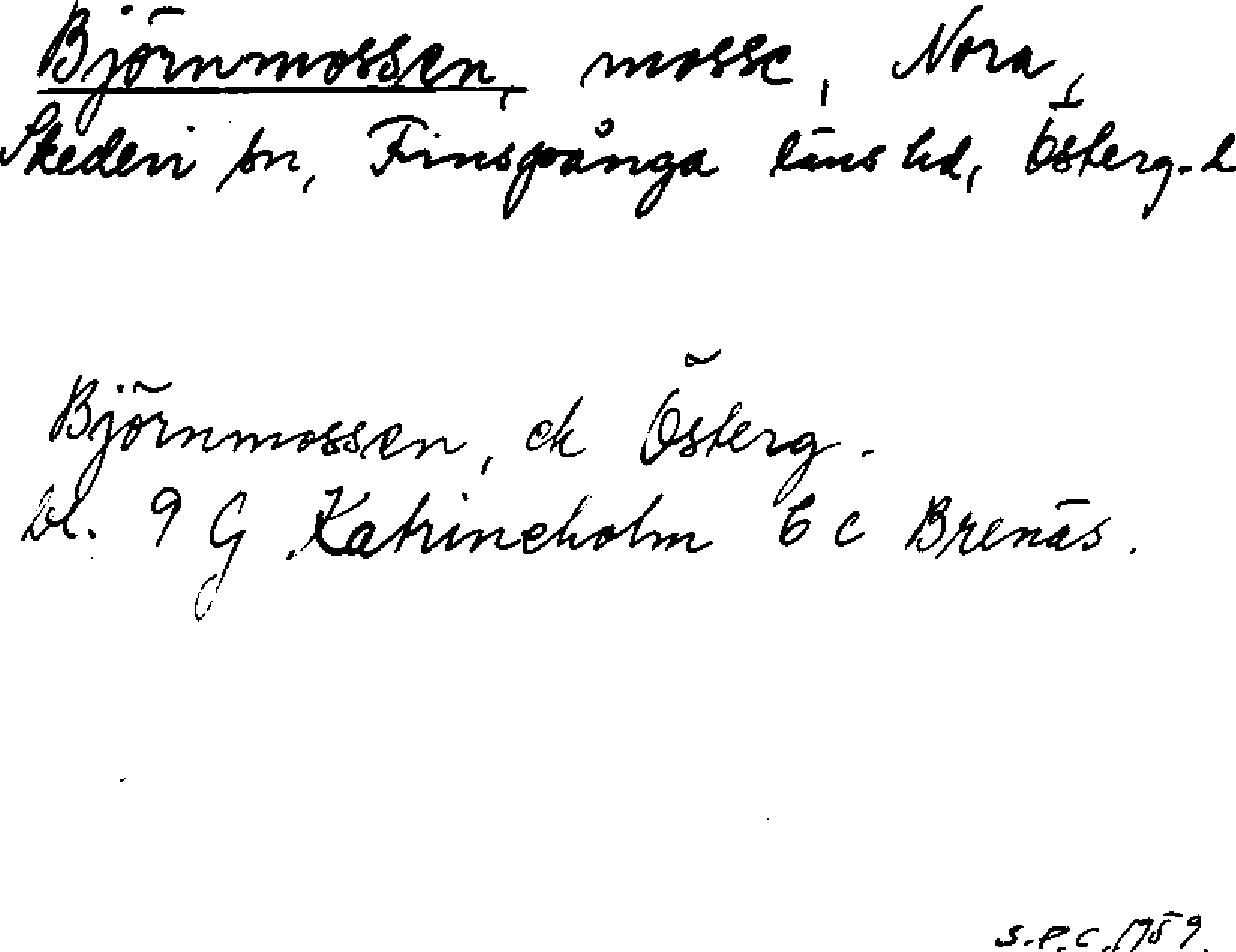 Björnmossen, mosse, Nora,
Skedevi sn, Finspånga läns hd, Österg. l
Björnmossen, ek Österg.
bl. 9 G Katrineholm 6 c Brenäs.
S.P.C. 1959.